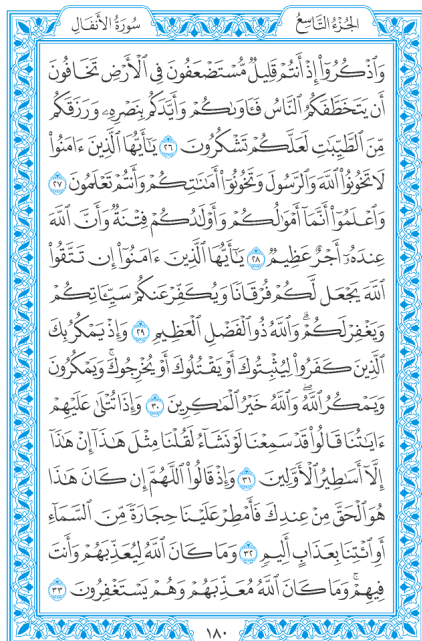 الجُزْءُ التَّاسِعُ
سُورَةُ الأَنفَالِ
وَٱذْكُرُوٓا۟ إِذْ أَنتُمْ قَلِيلٌ مُّسْتَضْعَفُونَ فِى ٱلْأَرْضِ تَخَافُونَ
أَن يَتَخَطَّفَكُمُ ٱلنَّاسُ فَـَٔاوَىٰكُمْ وَأَيَّدَكُم بِنَصْرِهِۦ وَرَزَقَكُم
مِّنَ ٱلطَّيِّبَـٰتِ لَعَلَّكُمْ تَشْكُرُونَ ٢٦ يَـٰٓأَيُّهَا ٱلَّذِينَ ءَامَنُوا۟
لَا تَخُونُوا۟ ٱللَّهَ وَٱلرَّسُولَ وَتَخُونُوٓا۟ أَمَـٰنَـٰتِكُمْ وَأَنتُمْ تَعْلَمُونَ ٢٧
وَٱعْلَمُوٓا۟ أَنَّمَآ أَمْوَٰلُكُمْ وَأَوْلَـٰدُكُمْ فِتْنَةٌ وَأَنَّ ٱللَّهَ
عِندَهُۥٓ أَجْرٌ عَظِيمٌ ٢٨ يَـٰٓأَيُّهَا ٱلَّذِينَ ءَامَنُوٓا۟ إِن تَتَّقُوا۟
ٱللَّهَ يَجْعَل لَّكُمْ فُرْقَانًا وَيُكَفِّرْ عَنكُمْ سَيِّـَٔاتِكُمْ
وَيَغْفِرْ لَكُمْ ۗ وَٱللَّهُ ذُو ٱلْفَضْلِ ٱلْعَظِيمِ ٢٩ وَإِذْ يَمْكُرُ بِكَ
ٱلَّذِينَ كَفَرُوا۟ لِيُثْبِتُوكَ أَوْ يَقْتُلُوكَ أَوْ يُخْرِجُوكَ ۚ وَيَمْكُرُونَ
وَيَمْكُرُ ٱللَّهُ ۖ وَٱللَّهُ خَيْرُ ٱلْمَـٰكِرِينَ ٣٠ وَإِذَا تُتْلَىٰ عَلَيْهِمْ
ءَايَـٰتُنَا قَالُوا۟ قَدْ سَمِعْنَا لَوْ نَشَآءُ لَقُلْنَا مِثْلَ هَـٰذَآ ۙ إِنْ هَـٰذَآ
إِلَّآ أَسَـٰطِيرُ ٱلْأَوَّلِينَ ٣١ وَإِذْ قَالُوا۟ ٱللَّهُمَّ إِن كَانَ هَـٰذَا
هُوَ ٱلْحَقَّ مِنْ عِندِكَ فَأَمْطِرْ عَلَيْنَا حِجَارَةً مِّنَ ٱلسَّمَآءِ
أَوِ ٱئْتِنَا بِعَذَابٍ أَلِيمٍ ٣٢ وَمَا كَانَ ٱللَّهُ لِيُعَذِّبَهُمْ وَأَنتَ
فِيهِمْ ۚ وَمَا كَانَ ٱللَّهُ مُعَذِّبَهُمْ وَهُمْ يَسْتَغْفِرُونَ ٣٣
١٨٠